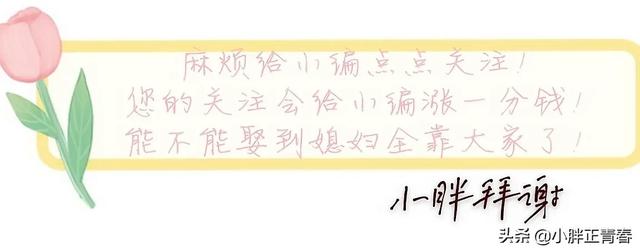 麻烦给小编点点关注!
您的关注会给小编涨一分钱!
能不能娶到媳妇全靠大家了!
小胖拜谢
头条 @小胖正青春